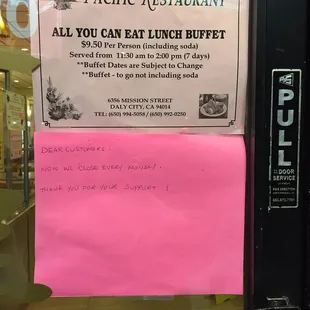 PACIFIC RESTAURANT
ALL YOU CAN EAT LUNCH BUFFET
$9.50 Per Person (including soda)
Served from 11:30 am to 2:00 pm (7 days)
**Buffet Dates are Subject to Change
**Buffet - to go not including soda
6356 MISSION STREET
DALY CITY, CA 94014
TEL: (650) 994-5058 / (650) 992-0250
DEAR CUSTOMERS.
NOW WE CLOSE EVERY MONDAY..
THANK YOU FOR YOUR SUPPORT !
PULL
DOOR
SERVICE